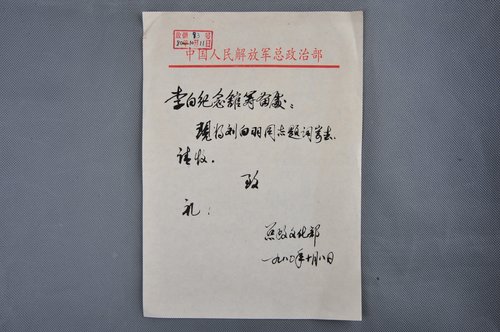 收 83 号
80年10月11日
中国人民解放军总政治部
李白纪念馆筹备处：
现将刘白羽同志题词寄去
请收。
致
礼！
总政文化部
一九八〇年十月八日